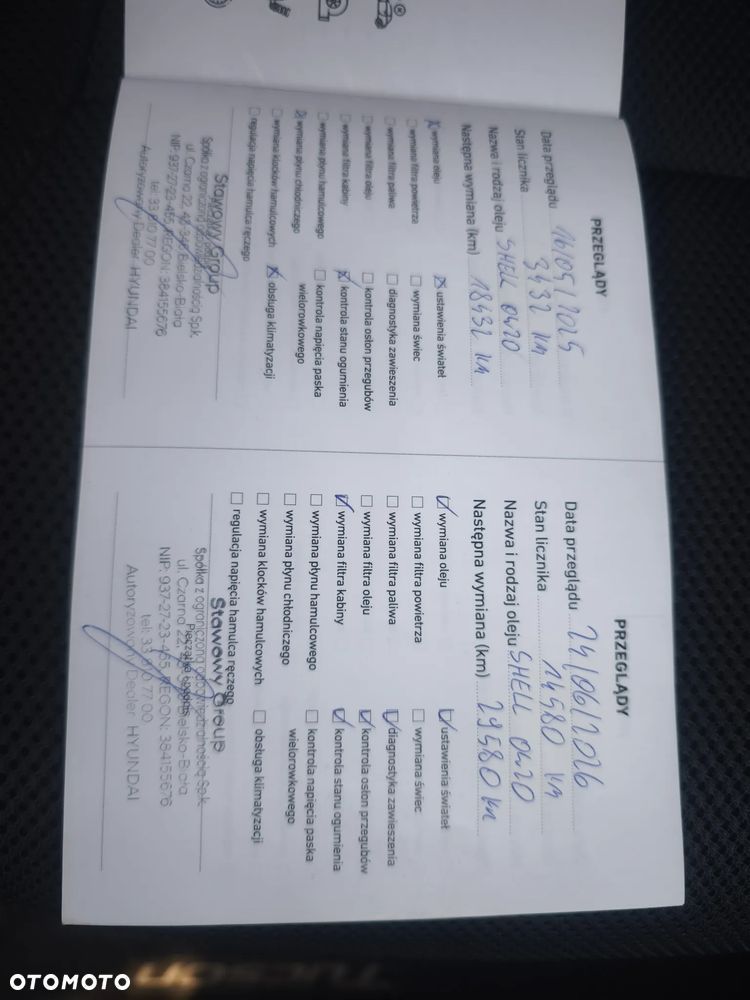 PRZEGLĄDY
Data przeglądu 16/05/2025
Stan licznika 3432 km
Nazwa i rodzaj oleju SHELL 0W20
Następna wymiana (km) 18432 km
☒ wymiana oleju ☒ ustawienia świateł
☐ wymiana filtra powietrza ☐ wymiana świec
☐ wymiana filtra paliwa ☐ diagnostyka zawieszenia
☐ wymiana filtra oleju ☐ kontrola osłon przegubów
☐ wymiana filtra kabiny ☒ kontrola stanu ogumienia
☐ wymiana płynu hamulcowego ☐ kontrola napięcia paska
☒ wymiana płynu chłodniczego wielorowkowego
☐ wymiana klocków hamulcowych ☒ obsługa klimatyzacji
☐ regulacja napięcia hamulca ręcznego
Stawowy Group
Spółka z ograniczoną odpowiedzialnością Sp.k.
ul. Czarna 22, 43-346 Bielsko-Biała
NIP: 937-27-23-455, REGON: 384155676
tel: 33 810 77 00
Autoryzowany Dealer HYUNDAI
PRZEGLĄDY
Data przeglądu 24/06/2026
Stan licznika 14580 km
Nazwa i rodzaj oleju SHELL 0W20
Następna wymiana (km) 29580 km
☑ wymiana oleju ☑ ustawienia świateł
☐ wymiana filtra powietrza ☐ wymiana świec
☐ wymiana filtra paliwa ☑ diagnostyka zawieszenia
☐ wymiana filtra oleju ☑ kontrola osłon przegubów
☑ wymiana filtra kabiny ☑ kontrola stanu ogumienia
☐ wymiana płynu hamulcowego ☐ kontrola napięcia paska
☐ wymiana płynu chłodniczego wielorowkowego
☐ wymiana klocków hamulcowych ☐ obsługa klimatyzacji
☐ regulacja napięcia hamulca ręcznego
Stawowy Group
Spółka z ograniczoną odpowiedzialnością Sp.k.
ul. Czarna 22, 43-346 Bielsko-Biała
NIP: 937-27-23-455, REGON: 384155676
tel: 33 810 77 00
Autoryzowany Dealer HYUNDAI
Tucson
OTOMOTO